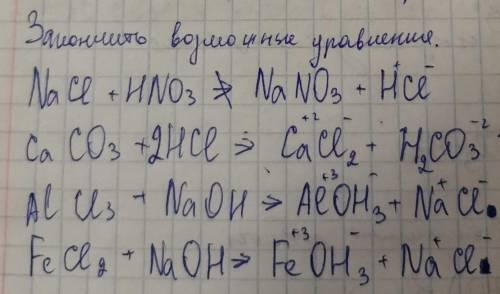 Закончить возможные уравнения.
NaCl + HNO₃ ⇏ NaNO₃ + H⁺Cl⁻
CaCO₃ + 2HCl ⇒ Ca⁺²Cl⁻₂ + H₂CO₃⁻²
AlCl₃ + NaOH > Al⁺³OH⁻₃ + Na⁺Cl⁻.
FeCl₂ + NaOH ⇒ Fe⁺³OH⁻₃ + Na⁺Cl⁻.